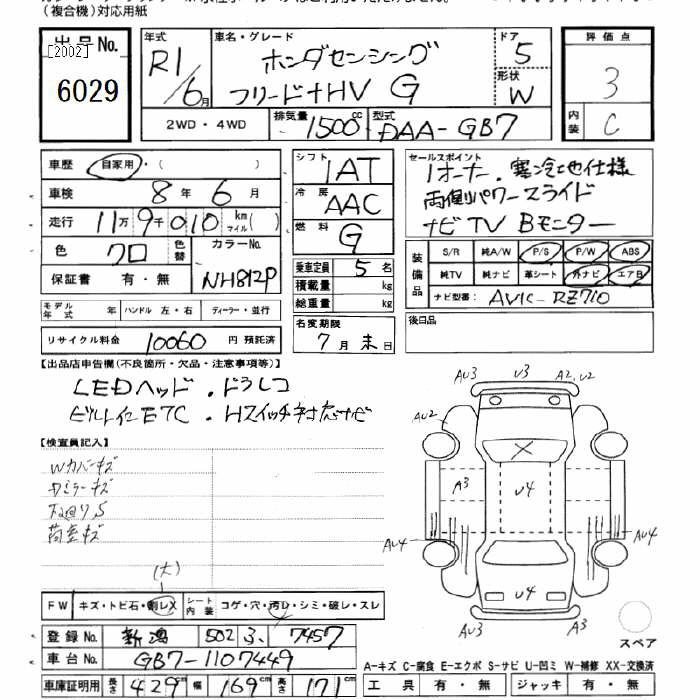 (複合機)対応用紙
出品No.
[2002]
6029
年式
R1/6月
車名・グレード
ホンダセンシング
フリード+HV G
ドア
5
形状
W
評価点
3
内装
C
2WD・4WD
排気量 1500cc
型式 DAA-GB7
車歴 自家用・( )
車検 8年 6月
走行 11万9千010 km マイル( )
色 クロ
色替
カラーNo.
NH812P
保証書 有・無
シフト
IAT
冷房
AAC
燃料
G
乗車定員 5名
積載量 kg
総重量 kg
セールスポイント
1オーナー. 寒冷地仕様
両側パワースライド
ナビTV Bモニター
装備品
S/R 純A/W P/S P/W ABS
純TV 純ナビ 革シート 外ナビ エアB
ナビ型番: AVIC-RZ710
モデル年式 年 ハンドル 左・右 ディーラー・並行
リサイクル料金 10060 円 預託済
名変期限
7月末日
後日品
【出品店申告欄(不良箇所・欠品・注意事項等)】
LEDヘッド.ドラレコ
ビルトインETC.Hスイッチ対応ナビ
【検査員記入】
Wカバーキズ
Dミラーキズ
下廻りS
荷室キズ
AU3 U3 A2,U2
AU2
A3 U4
AU4 AU4
U4
A3
スペア
(大)
FW キズ・トビ石・割レX
シート内装 コゲ・穴・汚レ・シミ・破レ・スレ
登録No. 新潟 502 ろ 7457
車台No. GB7-1107449
車庫証明用 長さ 429cm 幅 169cm 高さ 171cm
A-キズ C-腐食 E-エクボ S-サビ U-凹ミ W-補修 XX-交換済
工具 有・無 ジャッキ 有・無